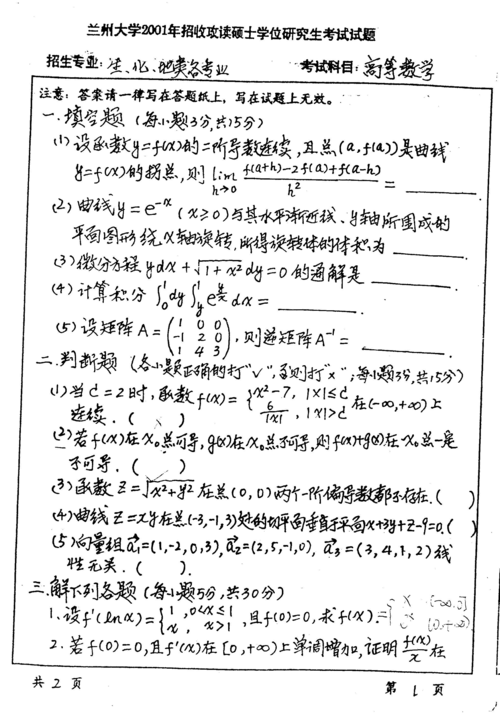 兰州大学2001年招收攻读硕士学位研究生考试试题
招生专业: 生、化、地类各专业 考试科目: 高等数学
注意: 答案请一律写在答题纸上，写在试题上无效。
一.填空题 (每小题3分,共15分)
(1) 设函数y=f(x)的二阶导数连续,且点(a,f(a))是曲线
y=f(x)的拐点,则 lim h→0 f(a+h)-2f(a)+f(a-h) / h² = ______
(2) 曲线y=e^-x (x≥0)与其水平渐近线、y轴所围成的
平面图形绕x轴旋转,所得旋转体的体积为 ______
(3) 微分方程 ydx+√(1+x²)dy=0的通解是 ______
(4) 计算积分 ∫₀¹dy∫_y^1 e^(y/x)dx= ______.
(5) 设矩阵A=(1 0 0; -1 2 0; 1 4 3),则逆矩阵A⁻¹= ______.
二.判断题 (各小题正确的打"√",否则打"×";每小题3分,共15分)
(1) 当c=2时,函数f(x)={x²-7, |x|≤c; 6/|x|, |x|>c 在(-∞,+∞)上
连续. ( )
(2) 若f(x)在x₀点可导,g(x)在x₀点不可导,则f(x)+g(x)在x₀点一定
不可导. ( )
(3) 函数Z=√(x²+y²)在点(0,0)两个一阶偏导数都不存在. ( )
(4) 曲线Z=xy在点(-3,-1,3)处的切平面垂直于平面x+3y+z-9=0.( )
(5) 向量组a₁=(1,-2,0,3),a₂=(2,5,-1,0),a₃=(3,4,1,2)线
性无关. ( ).
三.解下列各题 (每小题5分,共30分)
1. 设f'(lnx)={1, 0<x≤1; x, x>1 ,且f(0)=0,求f(x).
2. 若f(0)=0,且f'(x)在[0,+∞)上单调增加,证明 f(x)/x 在
共2页 第1页